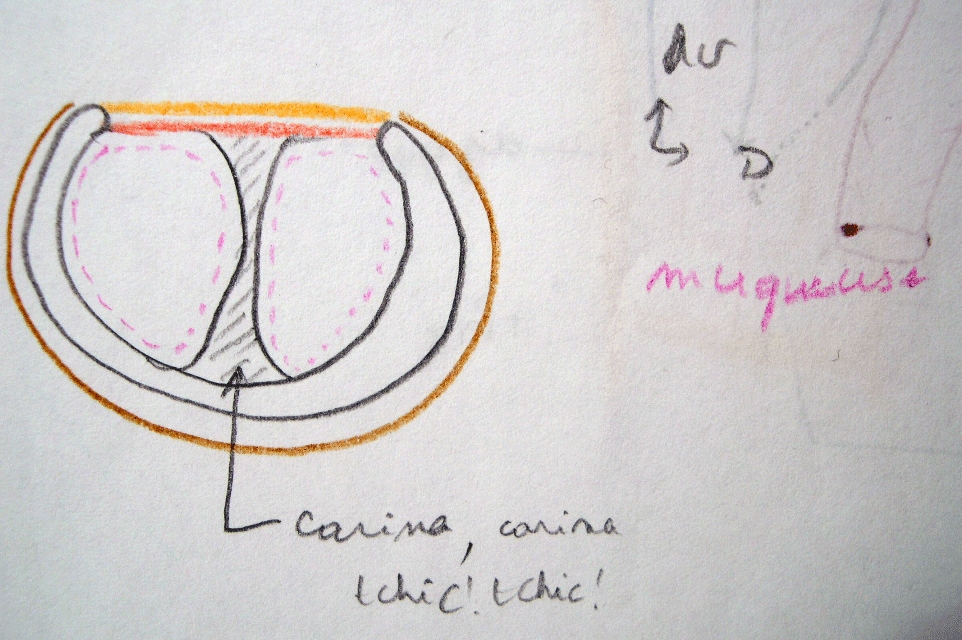 Av
D
muqueuse
carina, carina
tchic! tchic!